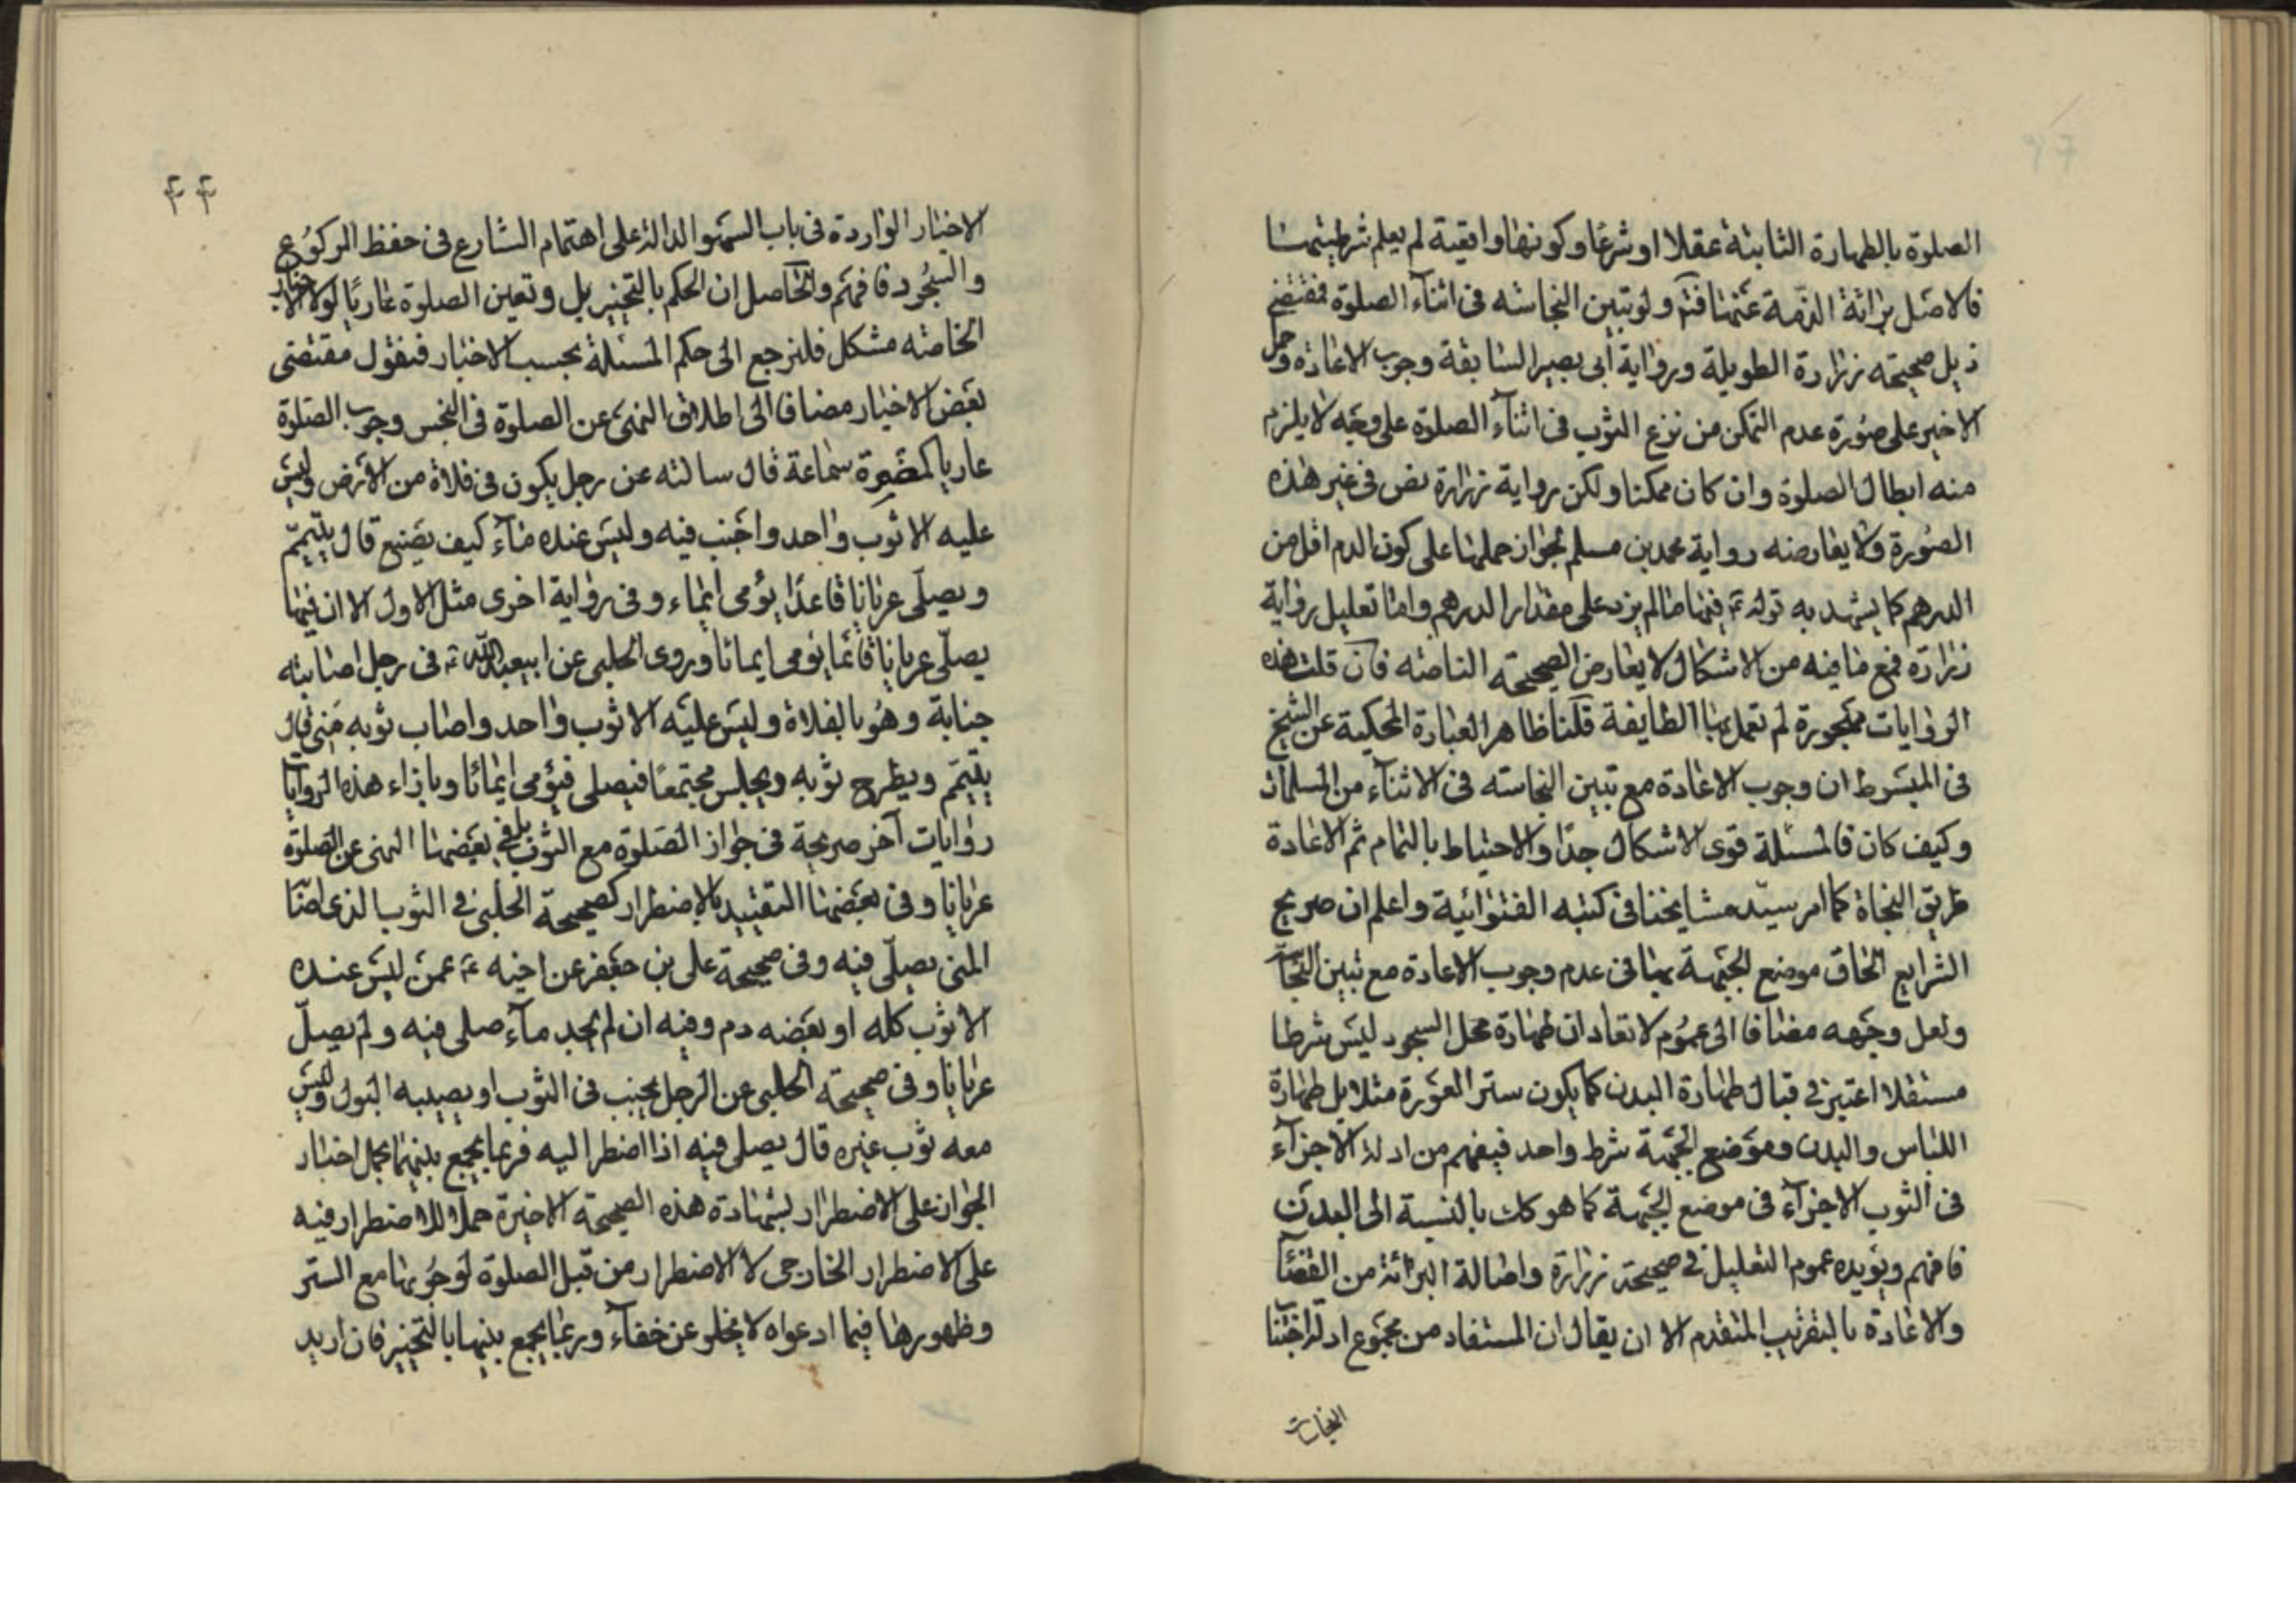 الصلوة بالطهارة الثابتة عقلا او شرعا وكونها واقعية لم يعلم شرطيتها
فالاصل برائة الذمة عنها فتم ولو تبين النجاسة في اثناء الصلوة فمقتضى
ذيل صحيحة زرارة الطويلة ورواية أبي بصير السابقة وجوب الاعادة وحمل
الاخير على صورة عدم التمكن من نزع الثوب في اثناء الصلوة على وجه لا يلزم
منه ابطال الصلوة وان كان ممكنا ولكن رواية زرارة نص في غير هذه
الصورة ولا يعارضه رواية محمد بن مسلم لجواز حملها على كون الدم اقل من
الدرهم كما يشهد به قوله ع فيها ما لم يزد على مقدار الدرهم واما تعليل رواية
زرارة فمع ما فيه من الاشكال لا يعارض الصحيحة الناصة فان قلت هذه
الروايات مهجورة لم تعمل بها الطايفة قلنا ظاهر العبارة المحكية عن الشيخ
في المبسوط ان وجوب الاعادة مع تبين النجاسة في الاثناء من المسلمات
وكيف كان فالمسئلة قوى الاشكال جدا والاحتياط بالتمام ثم الاعادة
طريق النجاة كما امر سيد مشايخنا في كتبه الفتوائية واعلم ان صريح
الشرايع الحاق موضع الجبهة بها في عدم وجوب الاعادة مع تبين النجا
ولعل وجهه مضافا الى عموم لا تعاد ان طهارة محل السجود ليس شرطا
مستقلا اعتبر في قبال طهارة البدن كما يكون ستر العورة مثلا بل طهارة
اللباس والبدن وموضع الجبهة شرط واحد فيفهم من ادلة الاجزاء
في الثوب الاجزاء في موضع الجبهة كما هو كك بالنسبة الى البدن
فافهم ويؤيده عموم التعليل في صحيحة زرارة واصالة البرائة من القضا
والاعادة بالتقريب المتقدم الا ان يقال ان المستفاد من مجموع ادلة اجتنا
النجاسات
۴۴
الاخبار الواردة في باب السهو الدالة على اهتمام الشارع في حفظ الركوع
والسجود فافهم والحاصل ان الحكم بالتخيير بل وتعين الصلوة عاريا لولا الاخبار
الخاصة مشكل فلنرجع الى حكم المسئلة بحسب الاخبار فنقول مقتضى
بعض الاخبار مضافا الى اطلاق النهى عن الصلوة في النجس وجوب الصلوة
عاريا كمضمرة سماعة قال سالته عن رجل يكون في فلاة من الارض وليس
عليه الا ثوب واحد واجنب فيه وليس عنده ماء كيف يصنع قال يتيمم
ويصلى عريانا قاعدا يؤمى ايماء وفي رواية اخرى مثل الاول الا ان فيها
يصلى عريانا قائما يؤمى ايمائا وروى الحلبي عن ابيعبد الله ع في رجل اصابته
جنابة وهو بالفلاة وليس عليه الا ثوب واحد واصاب ثوبه منى قال
يتيمم ويطرح ثوبه ويجلس مجتمعا فيصلى فيؤمى ايمائا وبازاء هذه الروايا
روايات آخر صريحة في جواز الصلوة مع الثوب بل في بعضها النهى عن الصلوة
عريانا وفي بعضها التقييد بالاضطرار كصحيحة الحلبي في الثوب الذي اصا
المنى يصلى فيه وفي صحيحة على بن جعفر عن اخيه ع عمن ليس عنده
الا ثوب كله او بعضه دم وفيه ان لم يجد ماء صلى فيه ولم يصل
عريانا وفي صحيحة الحلبي عن الرجل يجنب في الثوب او يصيبه البول وليس
معه ثوب غيره قال يصلى فيه اذا اضطر اليه فربما يجمع بينهما بحمل اخبار
الجواز على الاضطرار بشهادة هذه الصحيحة الاخيرة حملا للاضطرار فيه
على الاضطرار الخارجى لا الاضطرار من قبل الصلوة لوجوبها مع الستر
وظهورها فيما ادعواه لا يخلو عن خفاء وربما يجمع بينها بالتخيير فان اريد